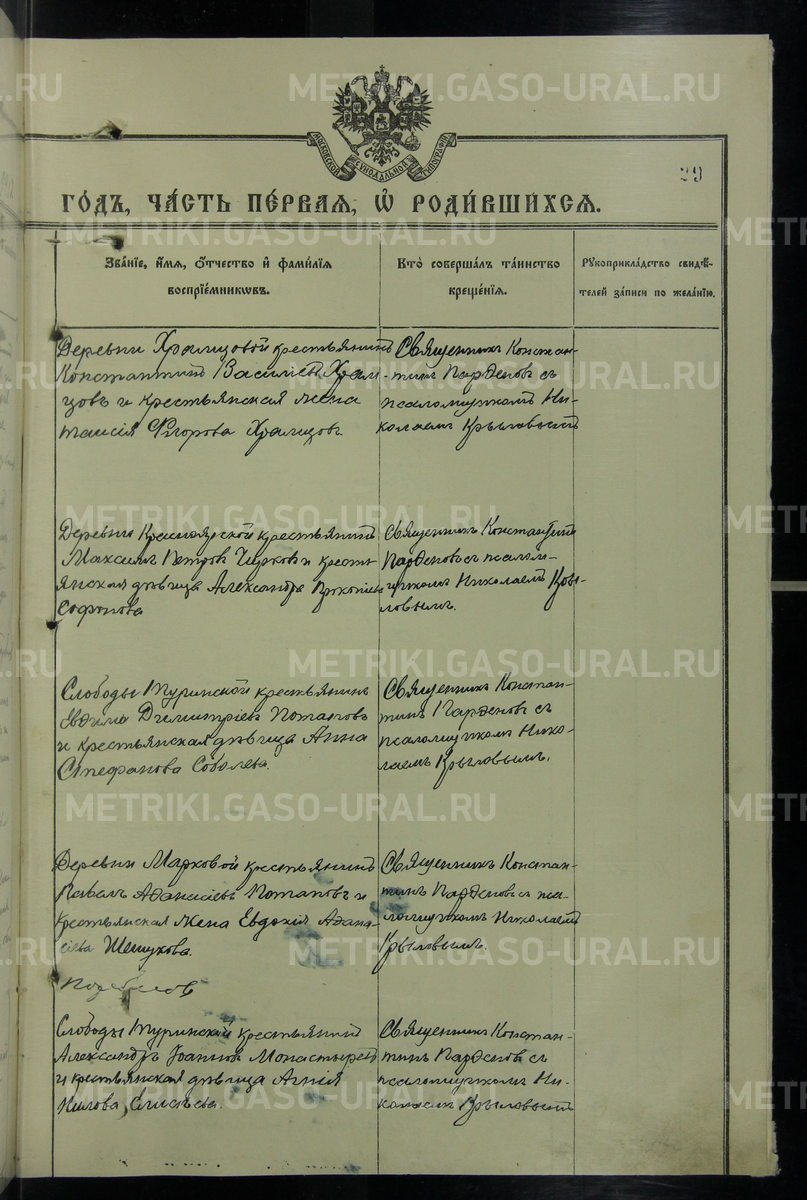 METRIKI.GASO-URAL.RU
МОСКОВСКОЙ СѴНОДАЛЬНОЙ ТИПОГРАФІИ
29
ГО́ДЪ, ЧА́СТЬ ПЕ́РВАЯ, Ѡ҆ РОДИ́ВШИХСЯ.
Зва́нїе, и҆́мя, ѻ҆́тчество и҆ фами́лїя
воспрїе́мникѡвъ.
Кто̀ соверша́лъ та́инство
креще́нїя.
Рꙋкоприкла́дство свидѣ́-
телей за́писи по жела́нїю.
Деревни Храмцовой крестьянинъ
Константинъ Васильевъ Храм
цовъ и крестьянская жена
Таисія Егорова Храмцов
Священникъ Констан-
тинъ Парѳеновъ съ
псаломщикомъ Ни-
колаемъ Крыловымъ
Деревни Красноярской крестьянинъ
Максимъ Петровъ Чирковъ и кресть
янская дѣвица Александра
Софонова
Священникъ Константинъ
Парѳеновъ съ псалом-
щикомъ Николаемъ Кры-
ловымъ.
Слободы Туринской крестьянинъ
Евфимъ Димитріевъ Потаповъ
и крестьянская дѣвица Анна
Стефанова Соболева.
Священникъ Констан-
тинъ Парѳеновъ съ
псаломщикомъ Нико-
лаемъ Крыловымъ.
Деревни Марковой крестьянинъ
Павелъ Аѳанасіевъ Потаповъ и
крестьянская жена Евдокія Аѳана-
сіева Шешукова.
Священникъ Констан-
тинъ Парѳеновъ съ пса-
ломщикомъ Николаемъ
Крыловымъ.
Слободы Туринской крестьянинъ
Александръ Іоанновъ Монастыревъ
и крестьянская дѣвица Агнія
Нилова Елисѣева.
Священникъ Констан-
тинъ Парѳеновъ съ
псаломщикомъ Ни-
колаемъ Крыловымъ